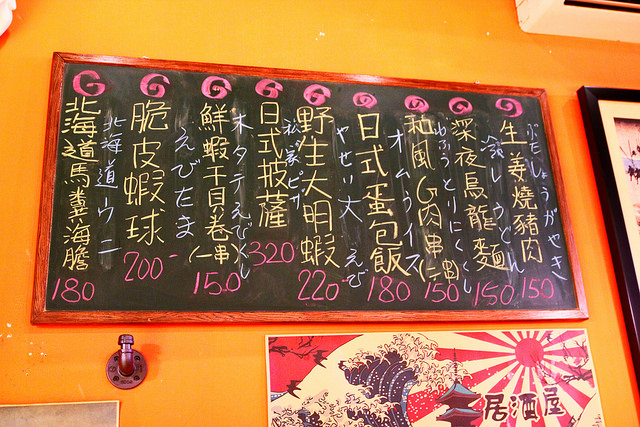 生姜燒豬肉
ぶたしょうがやき
150
深夜烏龍麵
150
和風G肉串(二串)
150
日式蛋包飯
オムライス
180
野生大明蝦
やせい大えび
220
日式披薩
320
鮮蝦干貝卷(一串)
ホタテえびくし
150
脆皮蝦球
えびたま
200-
北海道馬糞海膽
北海道ウニ
180
居酒屋